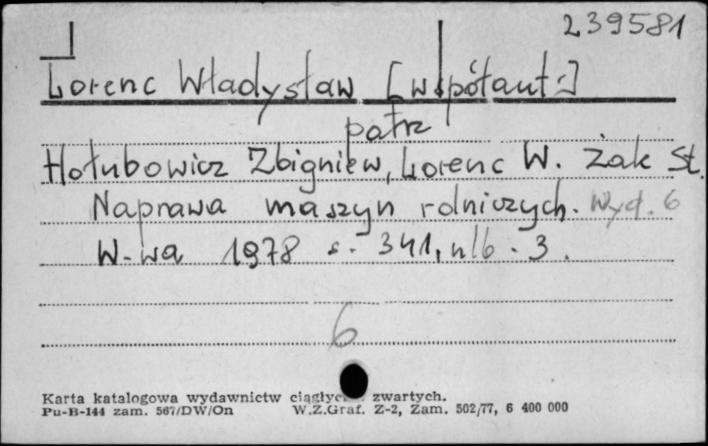 239581
Lorenc Władysław [współaut.]
patrz
Hołubowicz Zbigniew, Lorenc W. Żak St.
Naprawa maszyn rolniczych. Wyd. 6
W-wa 1978 s. 341, nlb. 3.
6
Karta katalogowa wydawnictw ciągłyc zwartych.
Pu-B-144 zam. 567/DW/On W.Z.Graf. Z-2, Zam. 502/77, 6 400 000